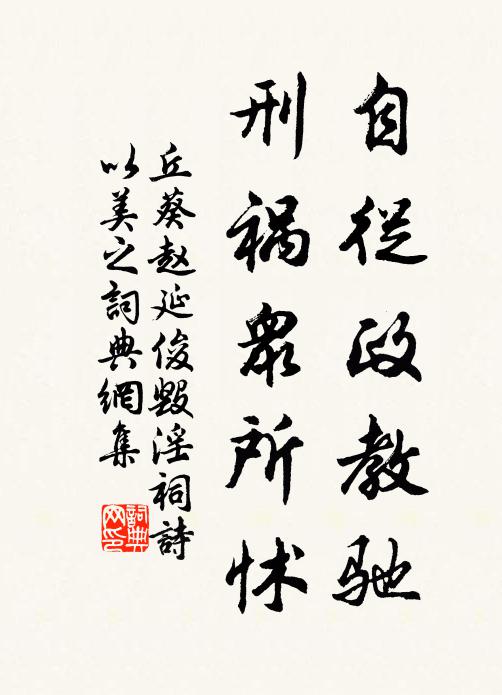 自從政教驰
刑祸衆所怵
丘葵赵延俊毀淫祠詩
以美之詞典網集
詞典网印